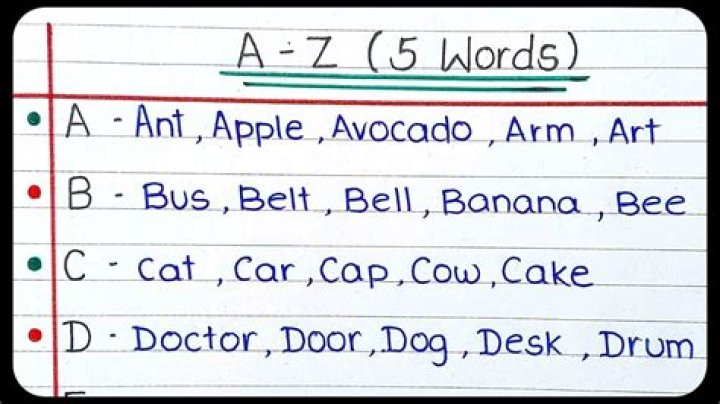 A - Z (5 Words)
A - Ant, Apple, Avocado, Arm, Art
B - Bus, Belt, Bell, Banana, Bee
C - Cat, Car, Cap, Cow, Cake
D - Doctor, Door, Dog, Desk, Drum